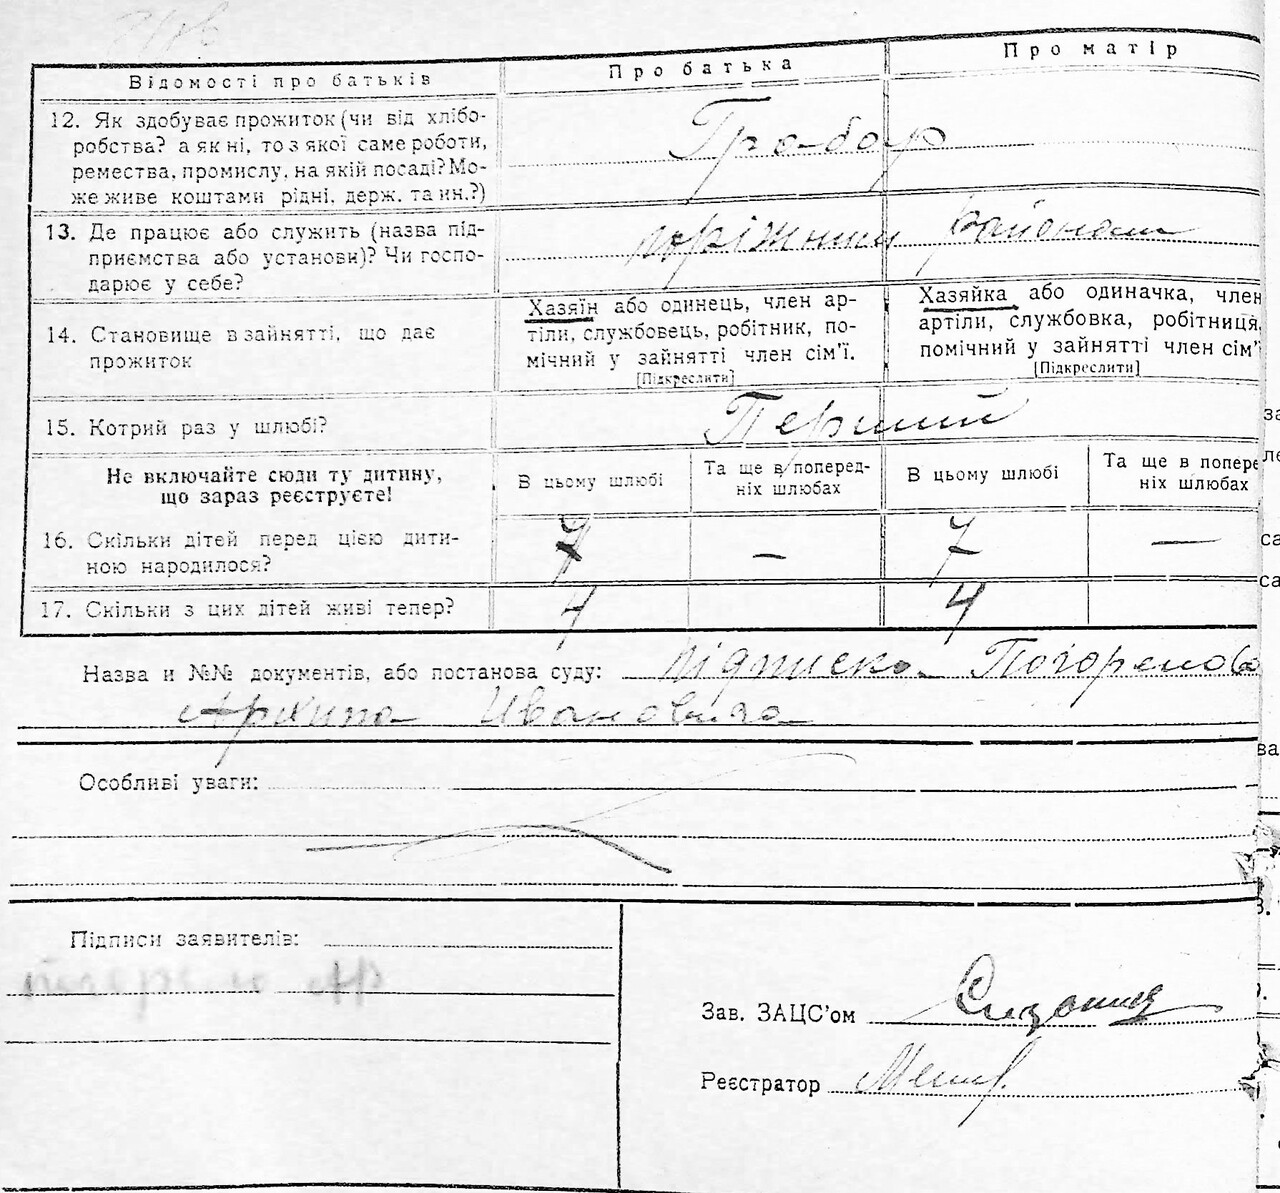 Відомості про батьків
Про батька
Про матір
12. Як здобуває прожиток (чи від хлібо-
робства? а як ні, то з якої саме роботи,
ремества, промислу, на якій посаді? Мо-
же живе коштами рідні, держ. та ин.?)
Грабар
13. Де працює або служить (назва під-
приємства або установи)? Чи госпо-
дарює у себе?
14. Становище в зайнятті, що дає
прожиток
Хазяїн або одинець, член ар-
тіли, службовець, робітник, по-
мічний у зайнятті член сім'ї.
[Підкреслити]
Хазяйка або одиначка, член
артіли, службовка, робітниця,
помічний у зайнятті член сім'ї
[Підкреслити]
15. Котрий раз у шлюбі?
Перший
Не включайте сюди ту дитину,
що зараз реєструєте!
В цьому шлюбі
Та ще в поперед-
ніх шлюбах
В цьому шлюбі
Та ще в попере
ніх шлюбах
16. Скільки дітей перед цією дити-
ною народилося?
7 — 7 —
17. Скільки з цих дітей живі тепер?
4 4
Назва и №№ документів, або постанова суду: підписка Погорелова
Архипа Ивановича
Особливі уваги:
Підписи заявителів:
Зав. ЗАЦС'ом
Реєстратор